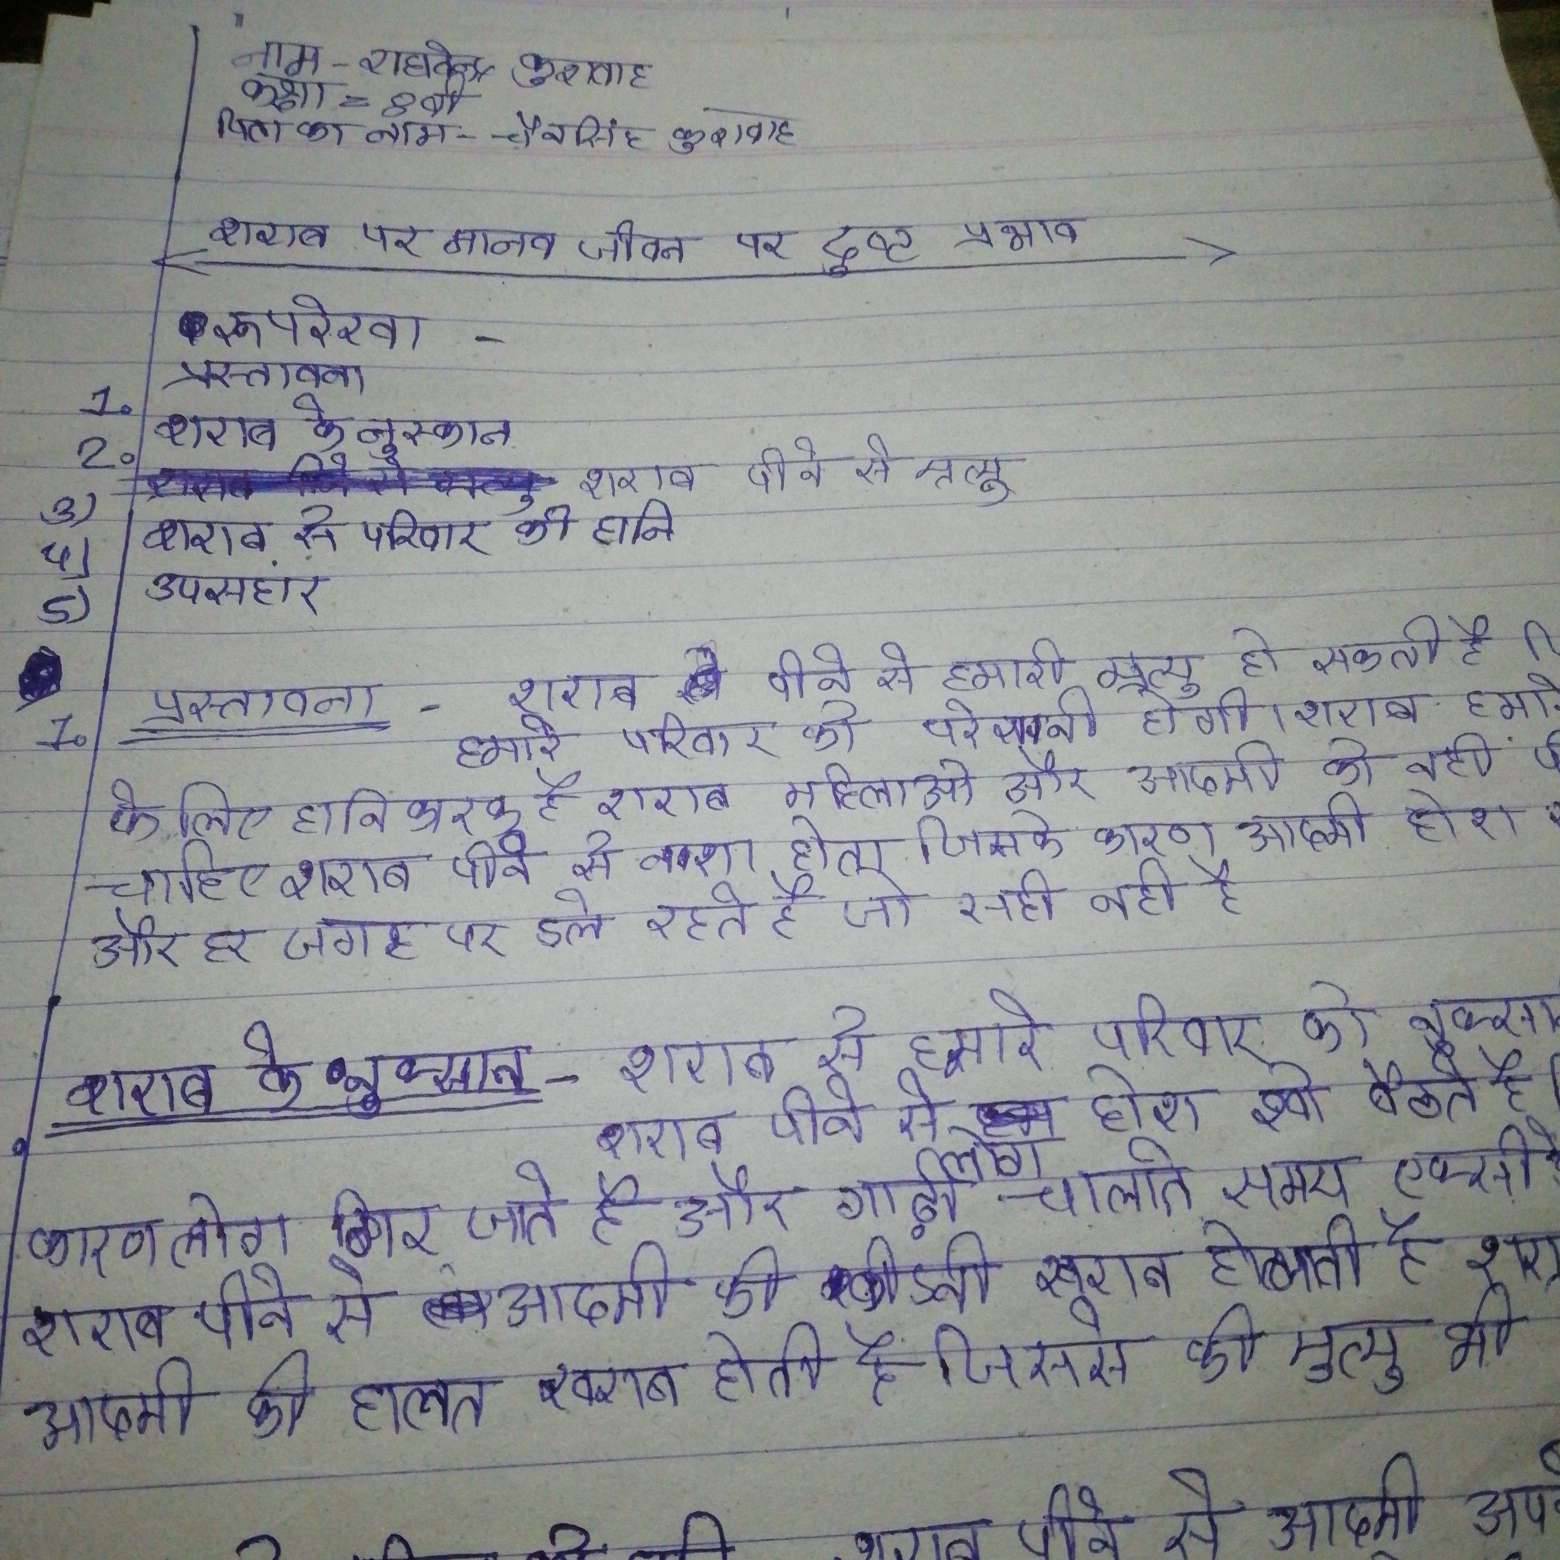 नाम - राघवेन्द्र कुशवाह
कक्षा = 8वी
पिता का नाम - चैनसिंह कुशवाह
शराब पर मानव जीवन पर दुष्ट प्रभाव
रूपरेखा -
1. प्रस्तावना
2. शराब के नुस्कान
3) शराब पीने से मृत्यु
4) शराब से परिवार की हानि
5) उपसहार
1. प्रस्तावना - शराब पीने से हमारी मृत्यु हो सकती है
हमारे परिवार को परेशानी होगी । शराब हमारे
के लिए हानिकारक है शराब महिलाओ और आदमी को नही
चाहिए शराब पीने से नशा होता जिसके कारण आदमी होश
और हर जगह पर डले रहते है जो सही नही है
शराब के नुक्सान - शराब से हमारे परिवार को नुक्सान
शराब पीने से होश खो बैठते है
लोग
कारण लोग गिर जाते है और गाड़ी चालाते समय एक्सी
शराब पीने से आदमी की कीडनी खराब हो जाती है
आदमी की हालत खराब होती है जिससे की मुत्यु भी
शराब पीने से आदमी